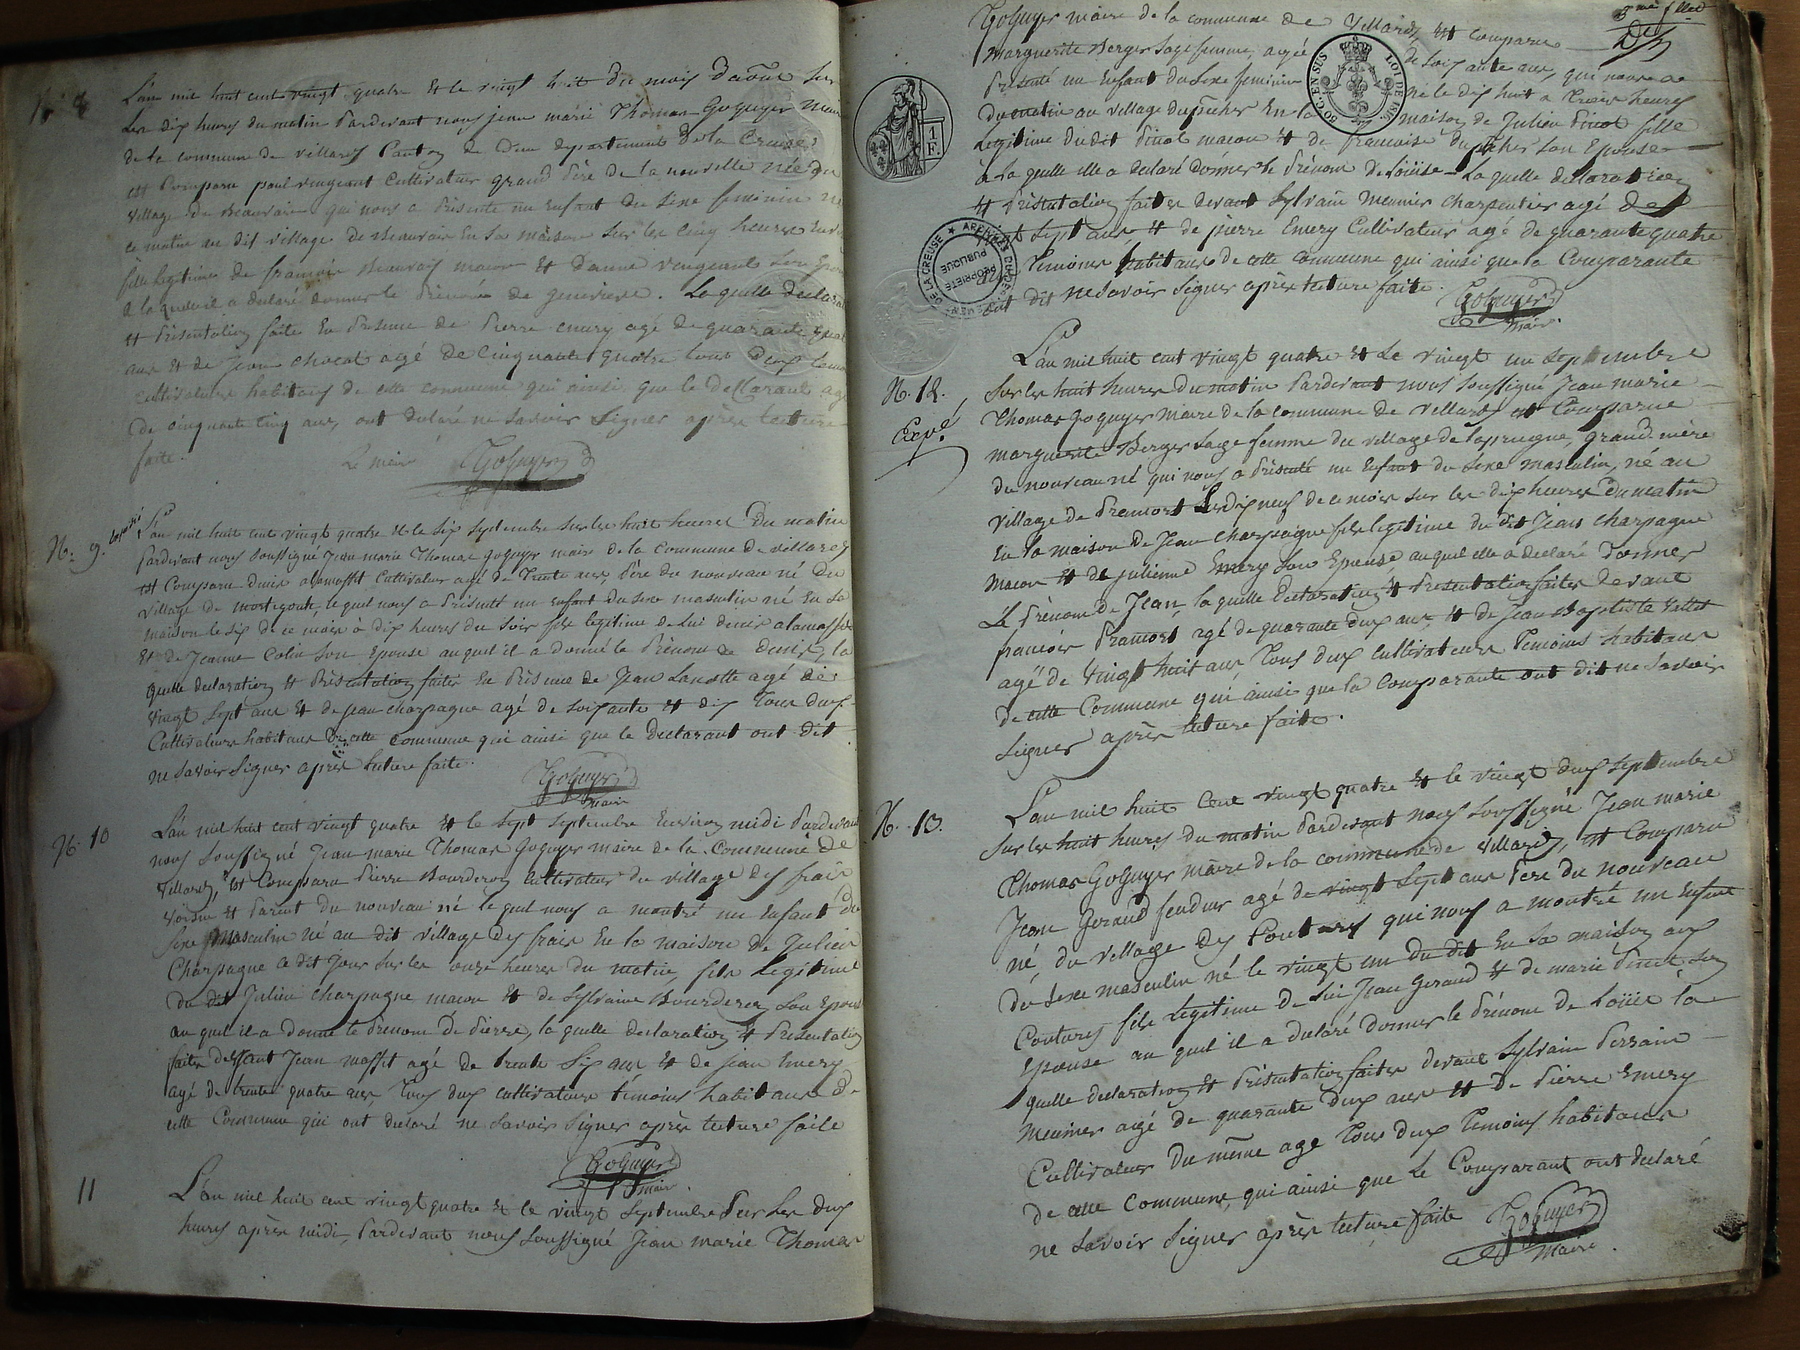 N. 8
L'an mil huit cent vingt quatre et le vingt huit du mois d'aout sur
les dix heures du matin Pardevant nous jean marie Thomas Goguyer maire
de la commune de villards Canton de Dun departement de la Creuse
est Comparu paul vingeant Cultivateur grand Père de la nouvelle née du
village de Beauvais qui nous a Présenté un Enfant du Sexe feminin né
ce matin au dit village de Beauvais En sa maison sur les cinq heures
fille legitime de françois Beauvais macon et d'anne vingeant son Epouse
à laquelle il a déclaré donner le Prénom de genevieve. La quelle declaration
et Présentation faite En Présence de Pierre emery agé de quarante quatre
ans et de Jean chocat agé de Cinquante quatre tous deux temoins
cultivateurs habitans de cette commune qui ainsi que le declarant agé
de cinquante cinq ans, ont declaré ne Savoir Signer après lecture
faite.
Le maire Goguyer
N. 9.
L'an mil huit cent vingt quatre et le Six Septembre Sur les huit heures Du matin
Pardevant nous Soussigné Jean marie Thomas Goguyer maire de la Commune de villards
est Comparu Denis alamassé Cultivateur agé de Trente ans, Père du nouveau né Du
village de, lequel nous a Présenté un Enfant du Sexe masculin né En Sa
maison le Six de ce mois à dix heures du Soir fils legitime de Lui denis alamassé
et de Jeanne Colin Son Epouse auquel il a donné le Prénom de Denis, la
quelle declaration et Présentation faites En Présence de Jean Lanotte agé de
vingt Sept ans et de Jean charpagne agé de Soixante et dix Tous deux
Cultivateurs habitans De cette commune qui ainsi que le Declarant ont dit
ne Savoir Signer après lecture faite.
Goguyer
maire
N. 10
L'an mil huit cent vingt quatre et le Sept Septembre Environ midi Pardevant
nous Soussigné Jean marie Thomas Goguyer maire de la Commune de
Villards, est Comparu Pierre Bourderon Cultivateur du village des frais
voisin et Parent du nouveau né lequel nous a montré un Enfant du
Sexe Masculin né au dit village des frais En la maison de Julien
Charpagne ce dit Jour Sur les onze heures du matin, fils Legitime
du dit Julien charpagne macon et de Sylvaine Bourderon Son Epouse
au quel il a donné le Prénom De Pierre, la quelle declaration et Présentation
faites devant Jean massit agé de trente Six ans et de jean Emery
agé de trente quatre ans Tous deux cultivateurs témoins habitans de
cette Commune qui ont declaré ne Savoir Signer après lecture faite
Goguyer
maire.
11
L'an mil huit cent vingt quatre et le vingt Septembre Sur Les deux
heures après midi, Pardevant nous Soussigné Jean marie Thomas
Goguyer maire de la commune de Villards est comparue
marguerite Berger Sage femme, agée de Soixante ans, qui nous a
Présenté un Enfant du Sexe feminin né le dix huit a Treize heures
Du matin au village Du pêcher En la maison de Julien Pinot fille
legitime Du dit Pinot macon et de françoise Du pêcher Son Epouse
à La quelle elle a declaré donner le Prénom de Loüise. La quelle declaration
et Présentation faites devant Sylvain Meunier Charpentier agé de
vingt Sept ans, et de pierre Emery Cultivateur agé de quarante quatre
Temoins habitans de cette Commune qui ainsi que la Comparante
ont dit ne Savoir Signer après lecture faite.
Goguyer
maire.
1 F
SOC. EN SUS LOI DE 1816
ARCHIVES DEPARTEMENTALES DE LA CREUSE
PROPRIETE PUBLIQUE
N. 12.
Expé
L'an mil huit cent vingt quatre et Le vingt un Septembre
Sur les huit heures du matin Pardevant nous Soussigné Jean marie
Thomas Goguyer Maire de la commune de Villards est Comparue
marguerite Berger Sage femme du village de Laprugne, grand-mère
du nouveau né qui nous a Présenté un Enfant du Sexe masculin, né au
village de Premort Le dix neuf de ce mois Sur les dix heures Du matin
En la maison de Jean Charpagne fils legitime du dit Jean Charpagne
Macon et de julienne Emery Son Epouse, auquel elle a declaré Donner
Le Prénom de Jean, la quelle Declaration et Présentation faites devant
françois Pramort agé de quarante deux ans et de Jean Baptiste Vallet
agé de vingt huit ans Tous deux cultivateurs Temoins habitans
De cette Commune qui ainsi que la Comparante ont dit ne Savoir
Signer après lecture faite.
N. 13.
L'an mil huit Cent vingt quatre et le vingt deux Septembre
Sur les huit heures du matin Pardevant nous Soussigné Jean marie
Thomas Goguyer maire de la commune de Villards, est Comparu
Jean Geraud fendeur agé de vingt Sept ans Père du nouveau
né, du village Des Coutures qui nous a montré un Enfant
du Sexe masculin né le vingt un du dit En Sa maison aux
Coutures fils legitime de Lui Jean Geraud et de marie Pinot Son
Epouse au quel il a declaré donner le Prénom de Loüis la
quelle declaration et Présentation faites devant Sylvain Perrain
Meunier agé de quarante deux ans et de Pierre Emery
Cultivateur Du même age Tous deux Temoins habitans
de cette Commune, qui ainsi que Le Comparant ont declaré
ne Savoir Signer après lecture faite Goguyer
Maire.